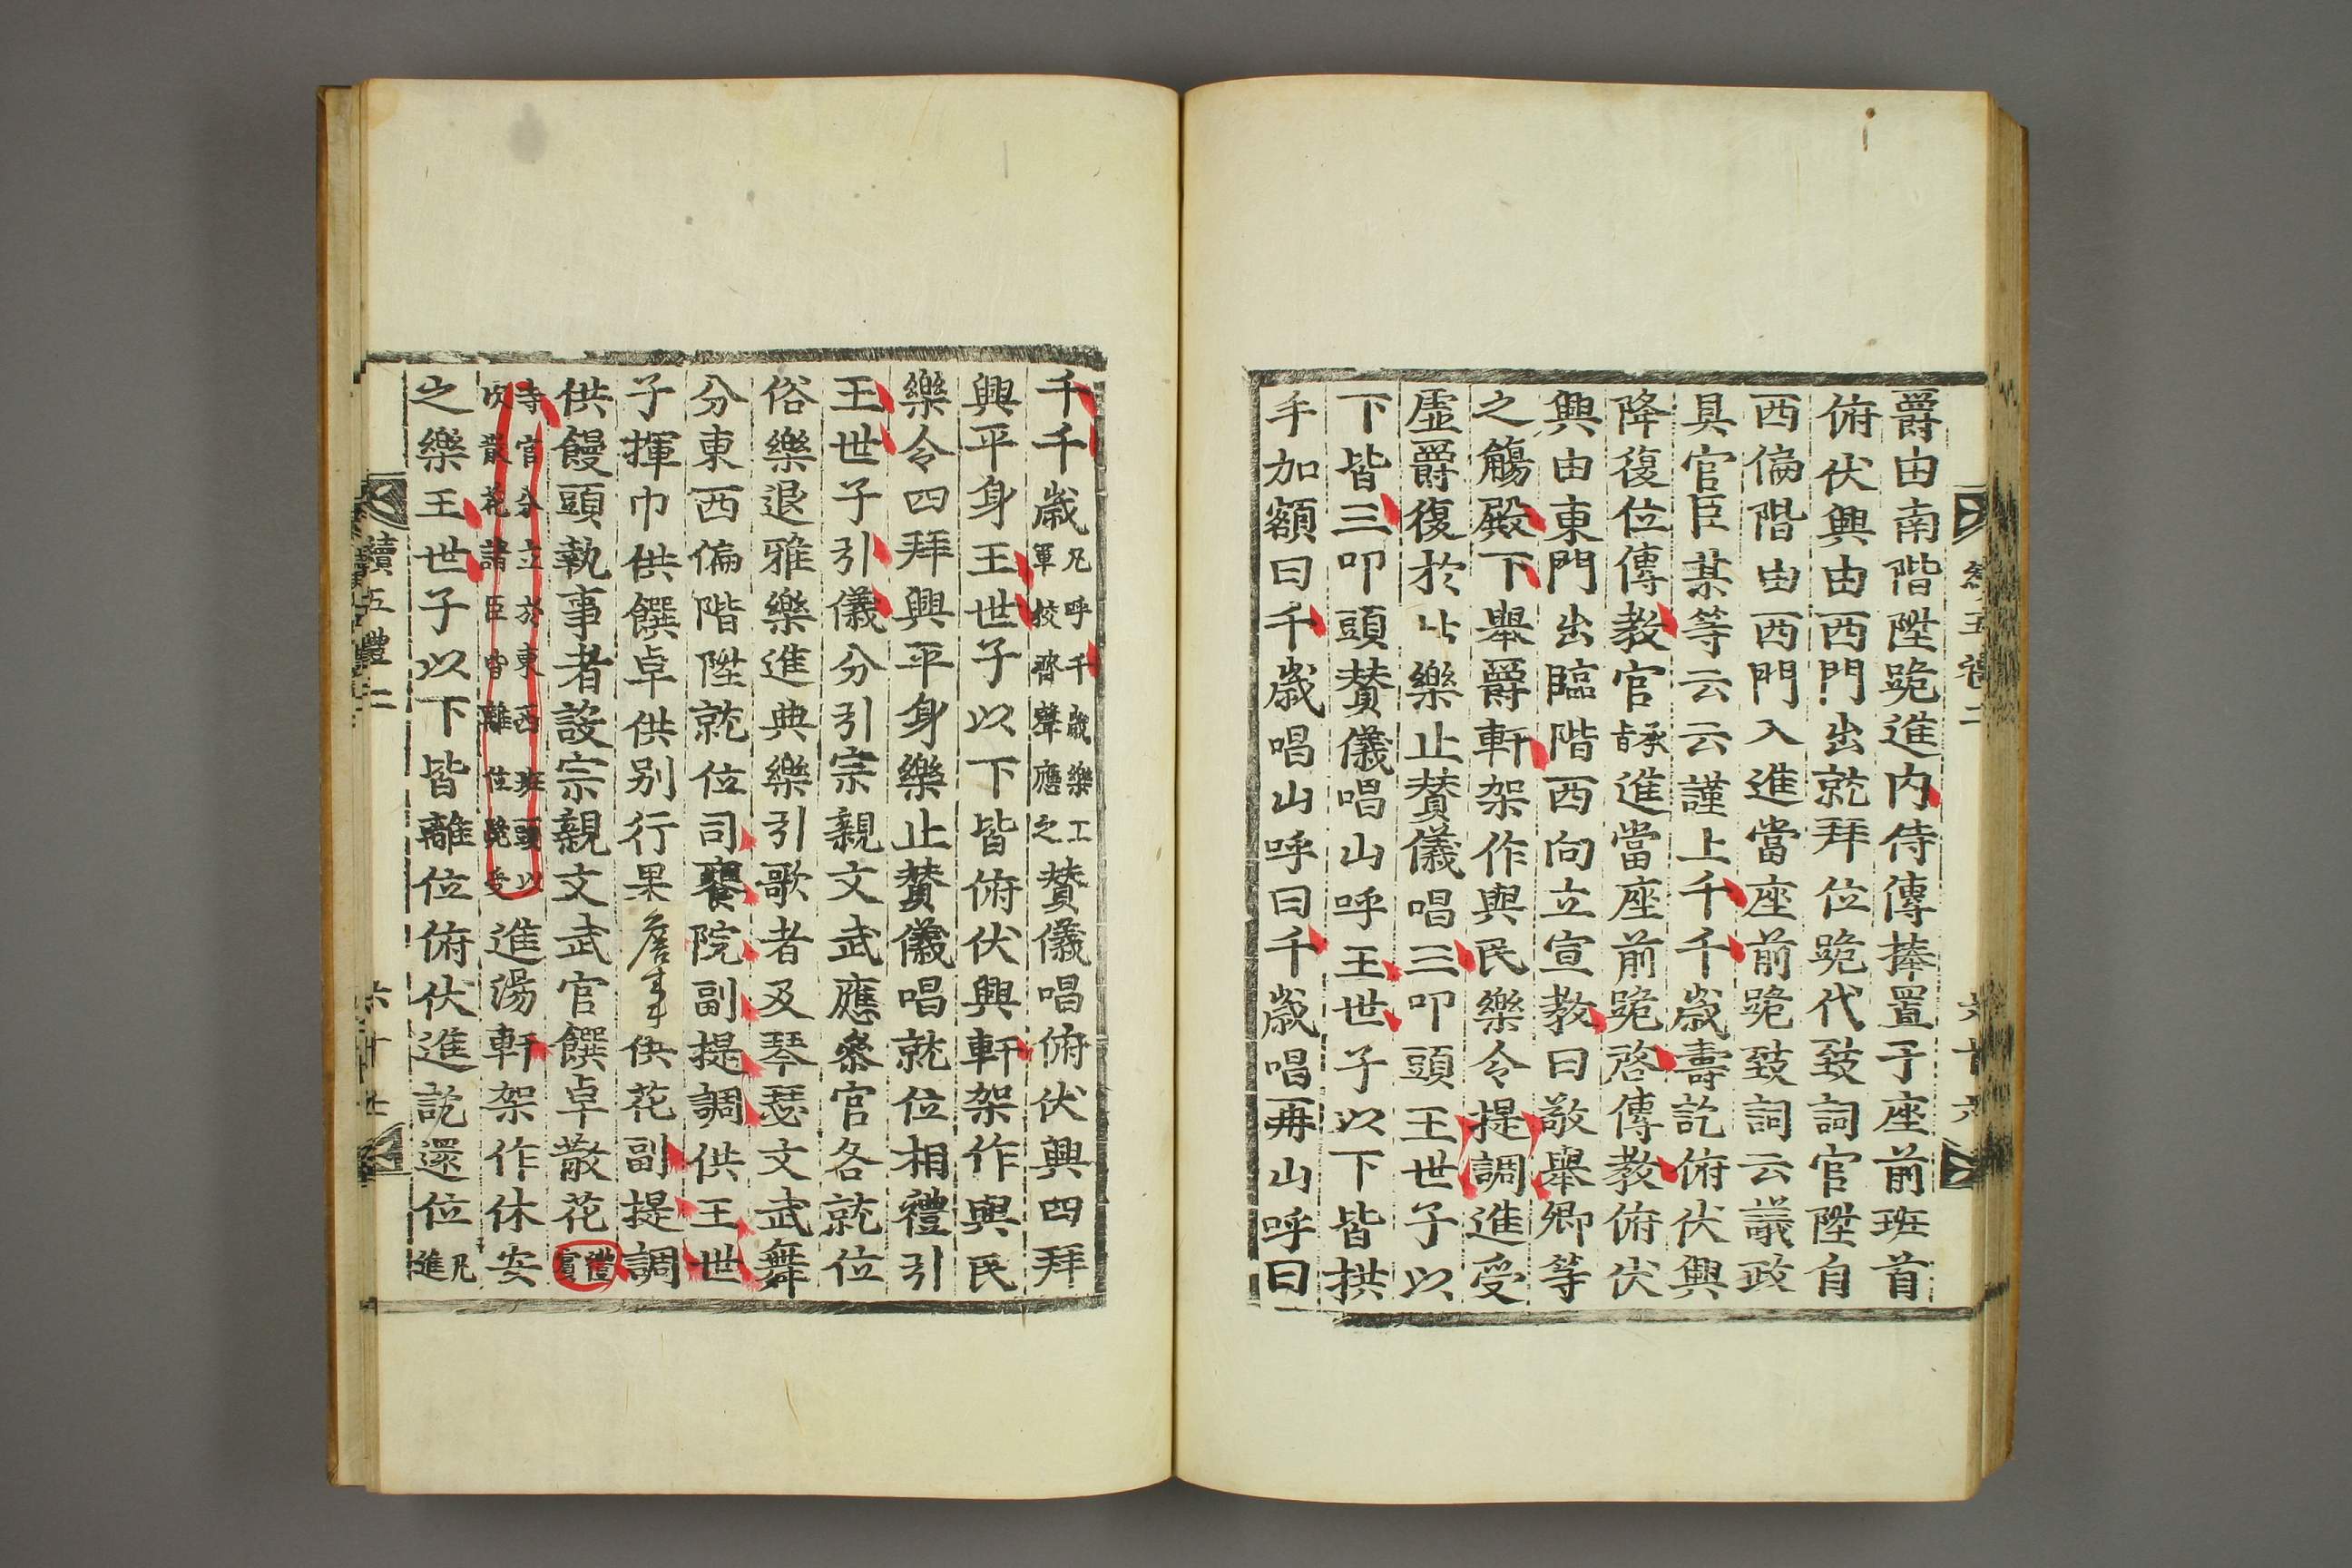 爵由南階陞跪進內侍傳捧置于座前班首
俯伏興由西門出就拜位跪代致詞官陞自
西偏階由西門入進當座前跪致詞云議政
具官臣某等云云謹上千千歲壽訖俯伏興
降復位傳教官承旨進當座前跪啓傳教俯伏
興由東門出臨階西向立宣教曰敬舉卿等
之觴殿下舉爵軒架作與民樂令提調進受
虛爵復於坫樂止贊儀唱三叩頭王世子以
下皆三叩頭贊儀唱山呼王世子以下皆拱
手加額曰千歲唱山呼曰千歲唱再山呼曰
五禮二
六十六
千千歲凡呼千歲樂工軍校齊聲應之贊儀唱俯伏興四拜
興平身王世子以下皆俯伏興軒架作與民
樂令四拜興平身樂止贊儀唱就位相禮引
王世子引儀分引宗親文武應參官各就位
俗樂退雅樂進典樂引歌者及琴瑟文武舞
分東西偏階陞就位司饔院副提調供王世
子揮巾供饌卓供別行果詹事供花副提調
供饅頭執事者設宗親文武官饌卓散花禮賓
寺官分立於東西班頭以次散花諸臣皆離位跪受進湯軒架作休安
之樂王世子以下皆離位俯伏進訖還位凡進
續五禮二
六十七